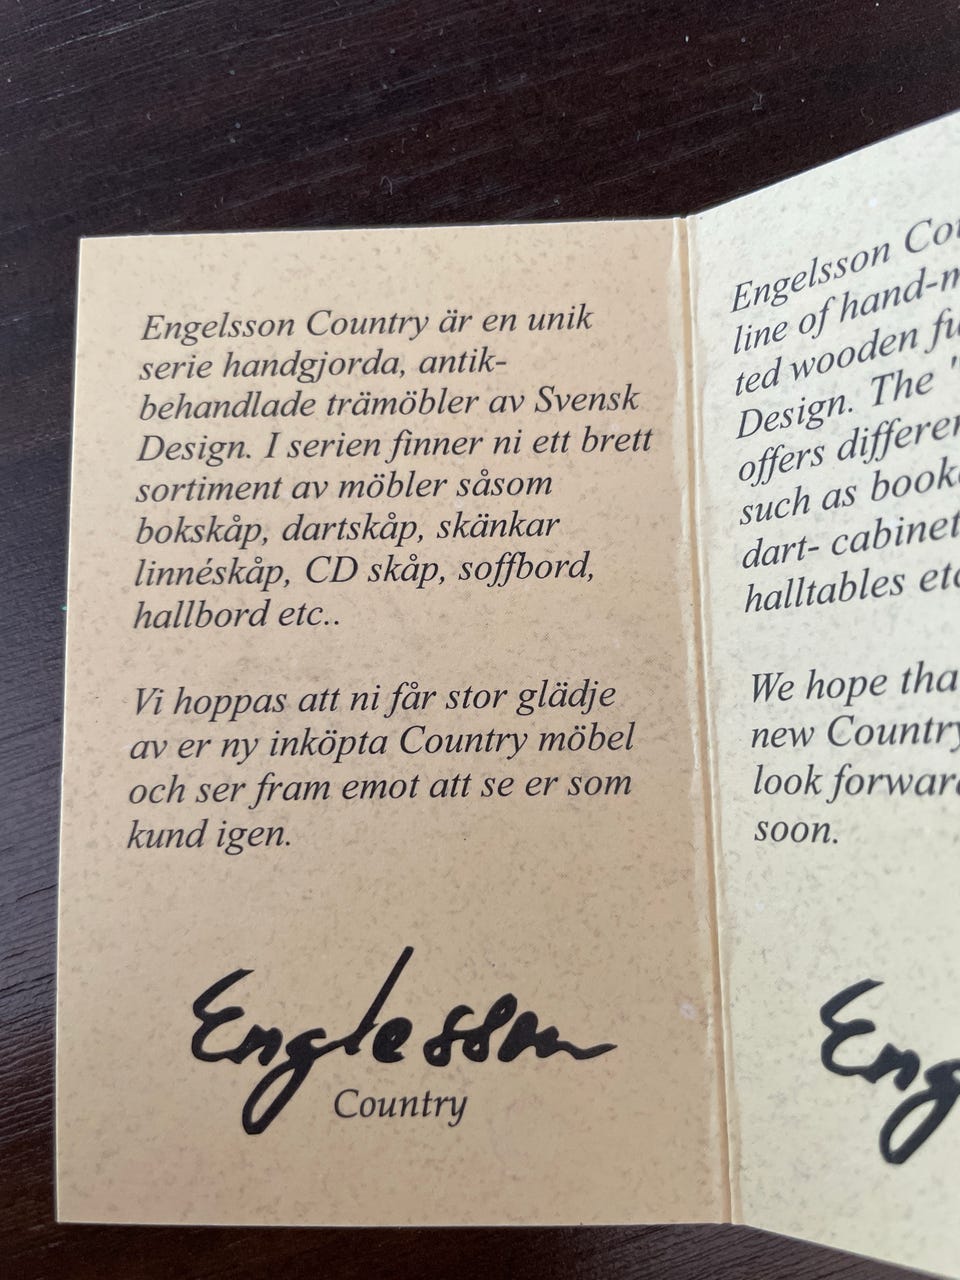 Engelsson Country är en unik
serie handgjorda, antik-
behandlade trämöbler av Svensk
Design. I serien finner ni ett brett
sortiment av möbler såsom
bokskåp, dartskåp, skänkar
linnéskåp, CD skåp, soffbord,
hallbord etc..
Vi hoppas att ni får stor glädje
av er ny inköpta Country möbel
och ser fram emot att se er som
kund igen.
Englesson
Country
Engelsson
line of
ted wooden
Design. The
offers
such as
dart- cabinet
halltables
We hope
new Country
look
soon.